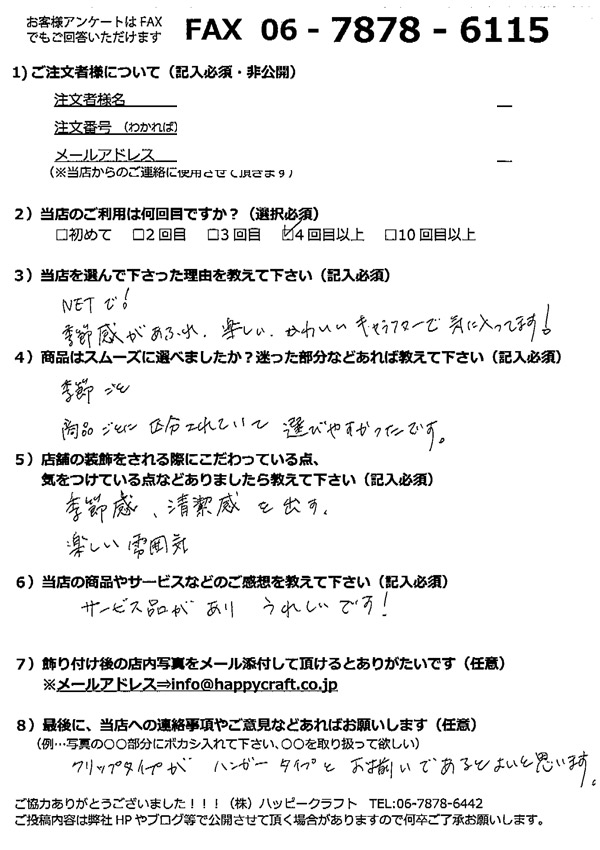 お客様アンケートは FAX
でもご回答いただけます
FAX 06 - 7878 - 6115
1) ご注文者様について（記入必須・非公開）
注文者様名
注文番号 （わかれば）
メールアドレス
（※当店からのご連絡に使用させて頂きます）
２）当店のご利用は何回目ですか？（選択必須）
□初めて □２回目 □３回目 ☑４回目以上 □10 回目以上
３）当店を選んで下さった理由を教えて下さい（記入必須）
NETで！
季節感があふれ、楽しい、かわいいキャラクターで気に入ってます！
４）商品はスムーズに選べましたか？迷った部分などあれば教えて下さい（記入必須）
季節ごと
商品ごとに区分されていて選びやすかったです。
５）店舗の装飾をされる際にこだわっている点、
気をつけている点などありましたら教えて下さい（記入必須）
季節感、清潔感を出す、
楽しい雰囲気
６）当店の商品やサービスなどのご感想を教えて下さい（記入必須）
サービス品があり うれしいです！
７）飾り付け後の店内写真をメール添付して頂けるとありがたいです（任意）
※メールアドレス⇒info@happycraft.co.jp
８）最後に、当店への連絡事項やご意見などあればお願いします（任意）
（例…写真の○○部分にボカシ入れて下さい、○○を取り扱って欲しい）
クリップタイプが ハンガータイプと お揃いであるとよいと思います。
ご協力ありがとうございました！！！（株）ハッピークラフト TEL:06-7878-6442
ご投稿内容は弊社 HP やブログ等で公開させて頂く場合がありますので何卒ご了承お願いします。